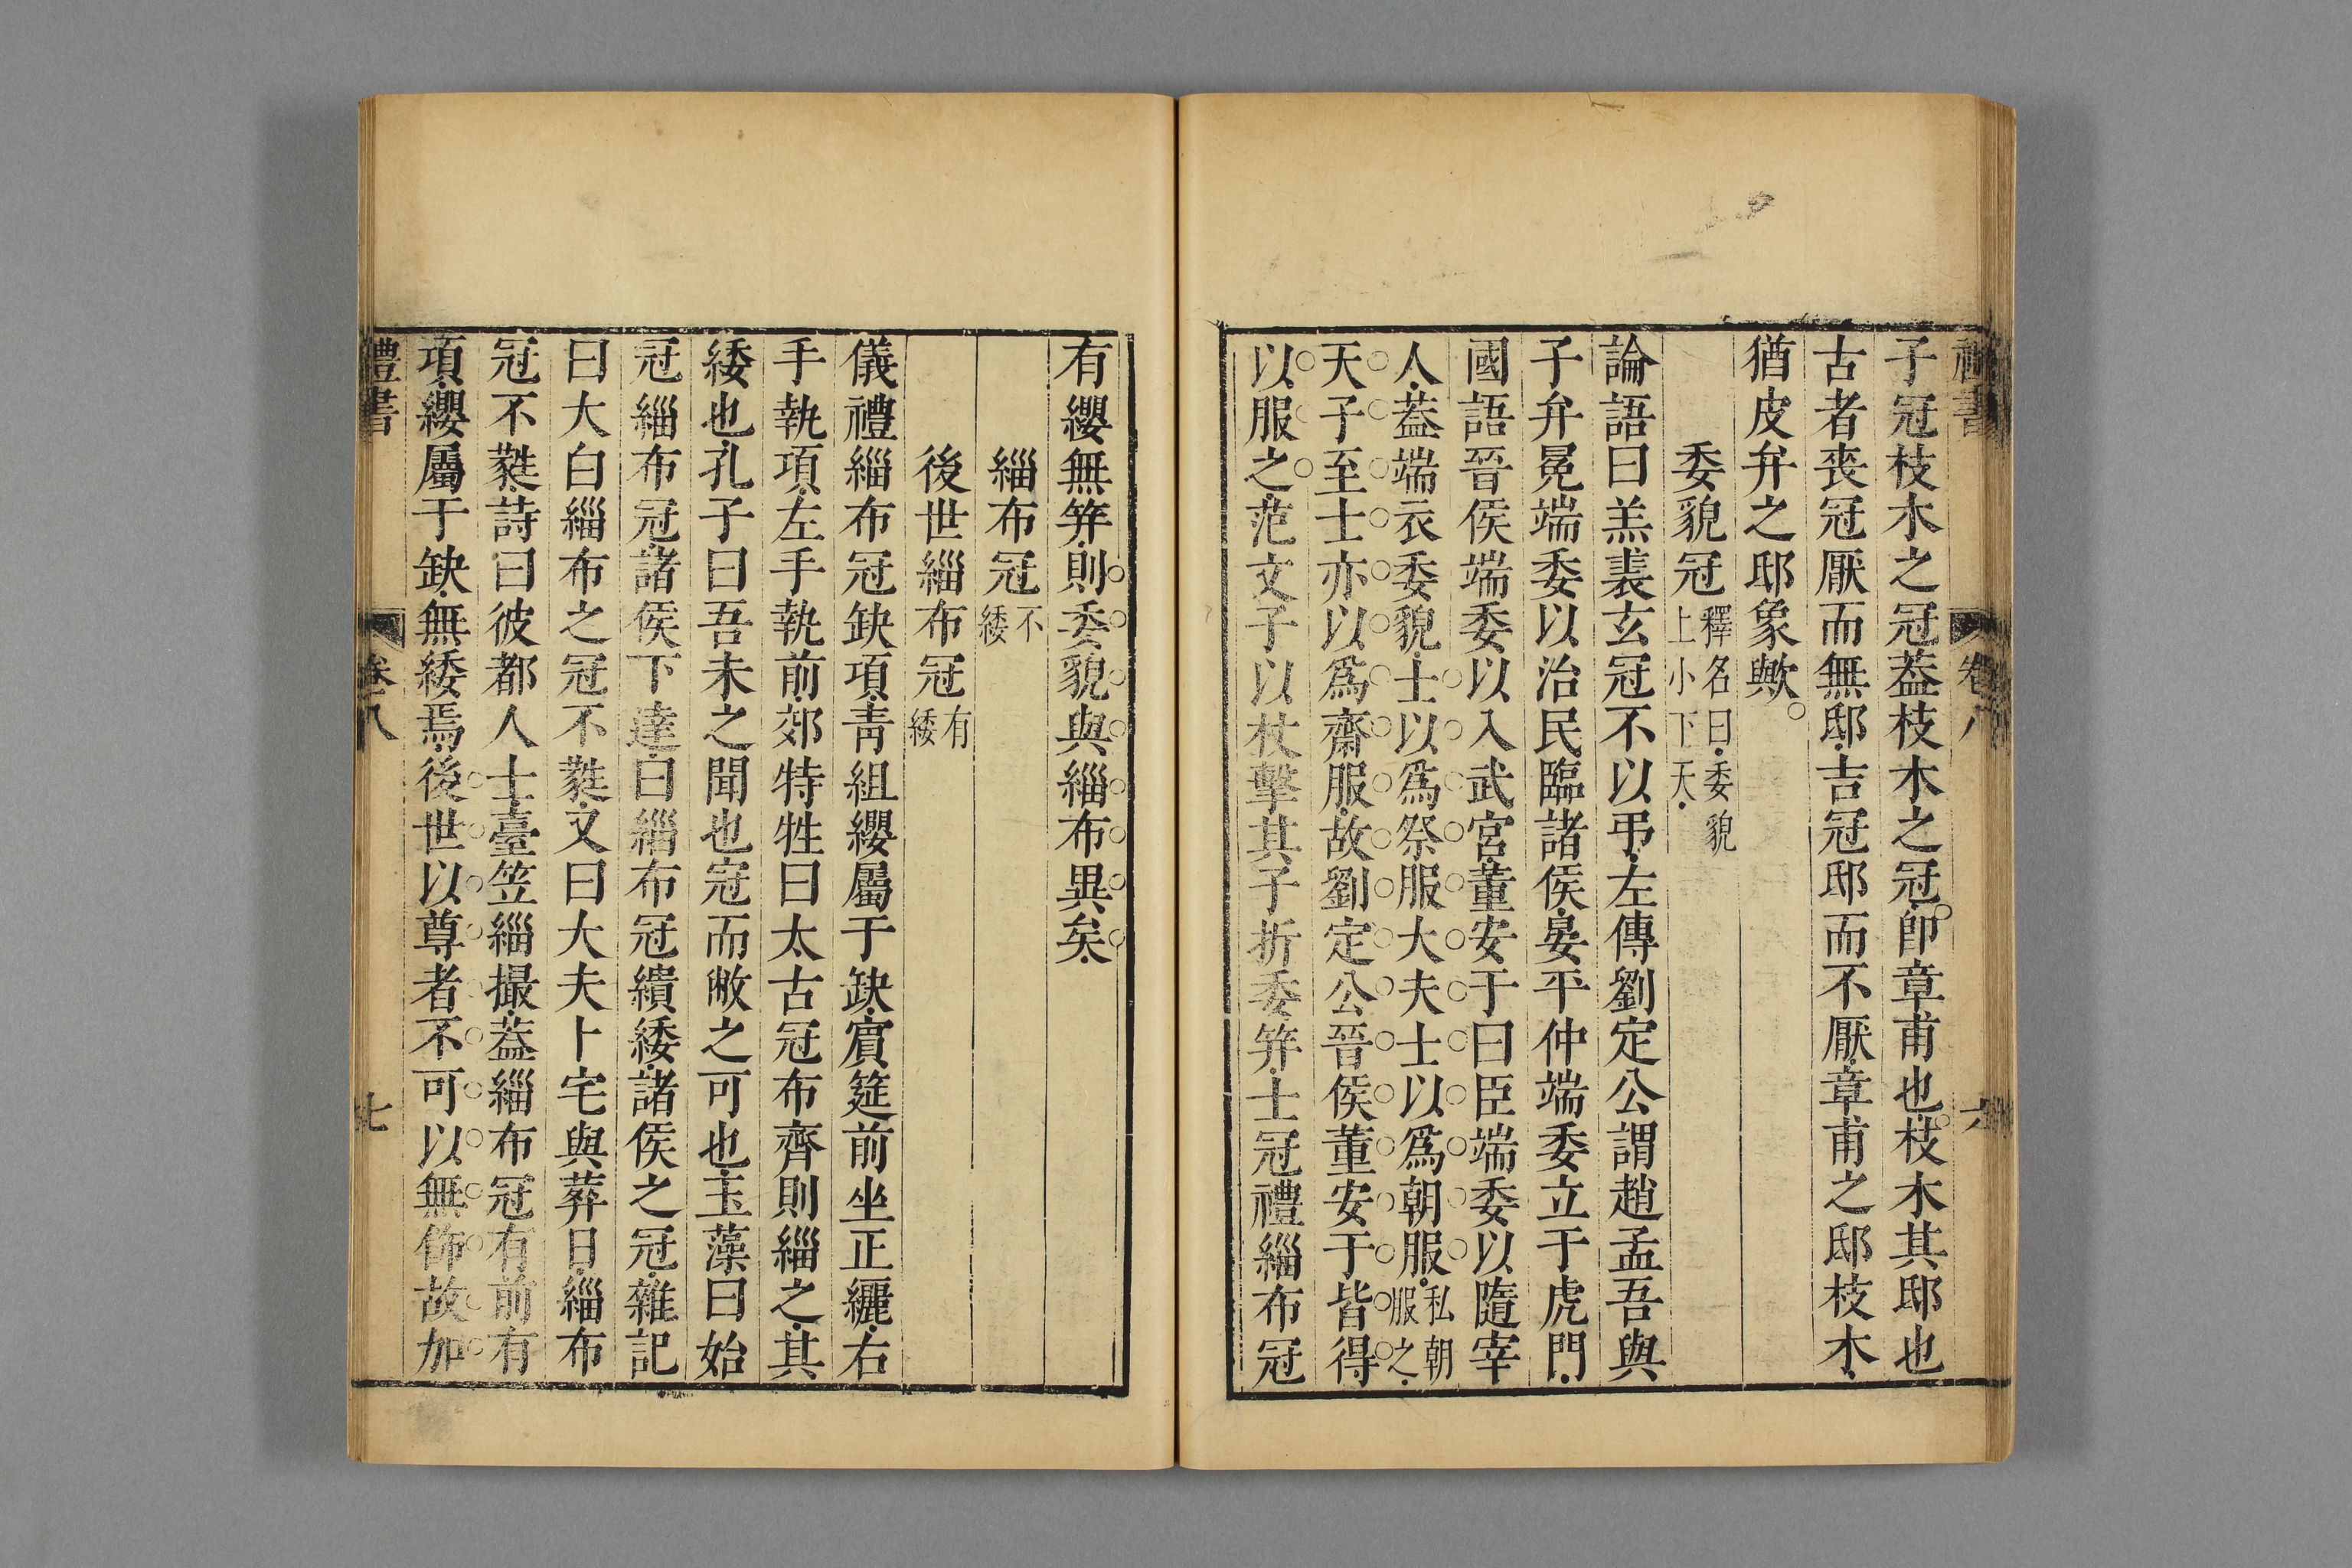 禮書 卷八 六
子冠枝木之冠葢枝木之冠卽章甫也枝木其邸也
古者喪冠厭而無邸吉冠邸而不厭章甫之邸枝木
猶皮弁之邸象歟
委貌冠釋名曰委貌上小下大
論語曰羔裘玄冠不以弔左傳劉定公謂趙孟吾與
子弁冕端委以治民臨諸侯晏平仲端委立于虎門
國語晉侯端委以入武宮董安于曰臣端委以隨宰
人葢端衣委貌士以爲祭服大夫士以爲朝服私朝服之
天子至士亦以爲齋服故劉定公晉侯董安于皆得
以服之范文子以杖擊其子折委笄士冠禮緇布冠
有纓無笄則委貌與緇布異矣
緇布冠不緌
後世緇布冠有緌
儀禮緇布冠缺項靑組纓屬于缺賔筵前坐正纚右
手執項左手執前郊特牲曰太古冠布齊則緇之其
緌也孔子曰吾未之聞也冠而敝之可也玉藻曰始
冠緇布冠諸侯下達曰緇布冠繢緌諸侯之冠雜記
曰大白緇布之冠不蕤又曰大夫卜宅與葬日緇布
冠不蕤詩曰彼都人士臺笠緇撮葢緇布冠有前有
項纓屬于缺無緌焉後世以尊者不可以無飾故加
禮書 卷八 七